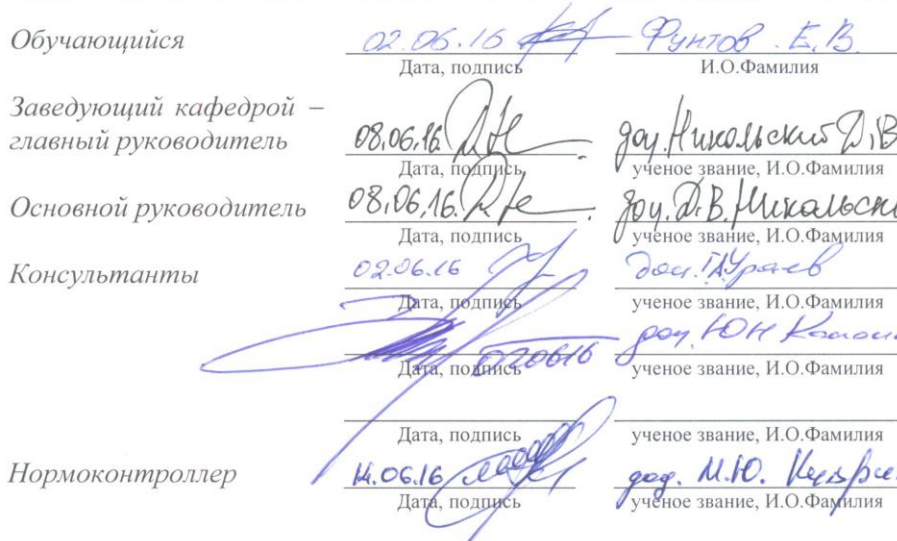 Обучающийся 02.06.16 Фунтов Е.В.
Дата, подпись И.О.Фамилия
Заведующий кафедрой –
главный руководитель 08.06.16. доц. Никольский Д.В
Дата, подпись ученое звание, И.О.Фамилия
Основной руководитель 08.06.16. доц. Д.В. Никольски
Дата, подпись ученое звание, И.О.Фамилия
Консультанты 02.06.16 доц.
Дата, подпись ученое звание, И.О.Фамилия
020616 доц. Ю Н
Дата, подпись ученое звание, И.О.Фамилия
Дата, подпись ученое звание, И.О.Фамилия
Нормоконтроллер 14.06.16 М.Ю.
Дата, подпись ученое звание, И.О.Фамилия